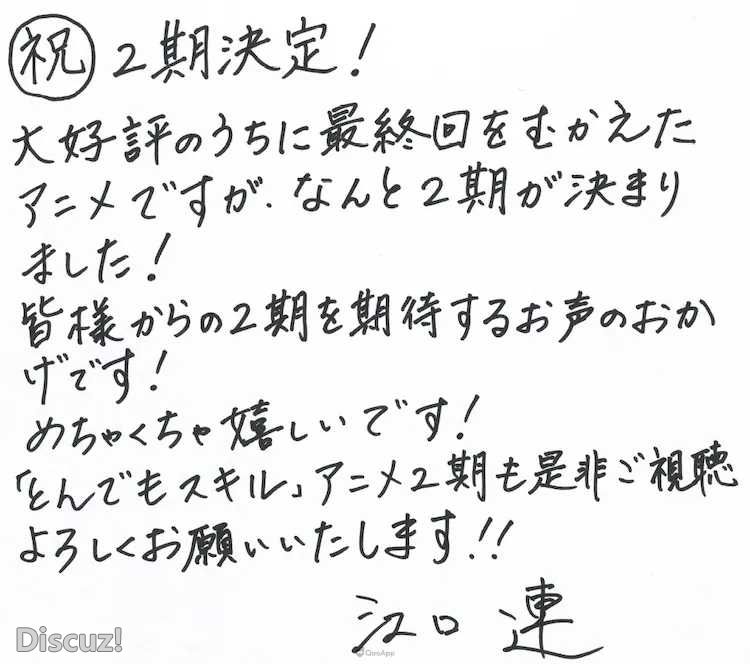 祝 2期決定!
大好評のうちに最終回をむかえた
アニメですが、なんと2期が決まり
ました!
皆様からの2期を期待するお声のおか
げです!
めちゃくちゃ嬉しいです!
「とんでもスキル」アニメ2期も是非ご視聴
よろしくお願いいたします!!
江口 連
Discuz!
©QooApp